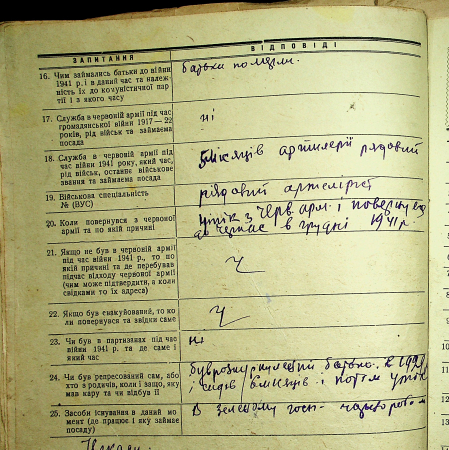 ЗАПИТАННЯ
ВІДПОВІДІ
16. Чим займались батьки до війни
1941 р. і в даний час та належ-
ність їх до комуністичної пар-
тії і з якого часу
батьки померли.
17. Служба в червоній армії під час
громадянської війни 1917—22
років, рід військ та займаєма
посада
ні
18. Служба в червоній армії під
час війни 1941 року, який час,
рід військ, останнє військове
звання та займаєма посада
5 місяців артилерії рядовий
19. Військова спеціальність
№ (ВУС)
рядовий артилерист
20. Коли повернувся з червоної
армії та по якій причині
втік з Черв арм. і
в грудні 1941 р.
21. Якщо не був в червоній армії
під час війни 1941 р., то по
якій причині та де перебував
підчас відходу червоної армії
(чим може підтвердити, а коли
свідками то їх адреса)
22. Якщо був евакуйований, то ко-
ли повернувся та звідки саме
23. Чи був в партизанах під час
війни 1941 р. та де саме і
який час
ні
24. Чи був репресований сам, або
хто з родичів, коли і защо, яку
мав кару та чи відбув її
був батько в
і сидів місяців і потом
25. Засоби існування в даний мо-
мент (де працює і яку займає
посаду)
В зеленому госп.